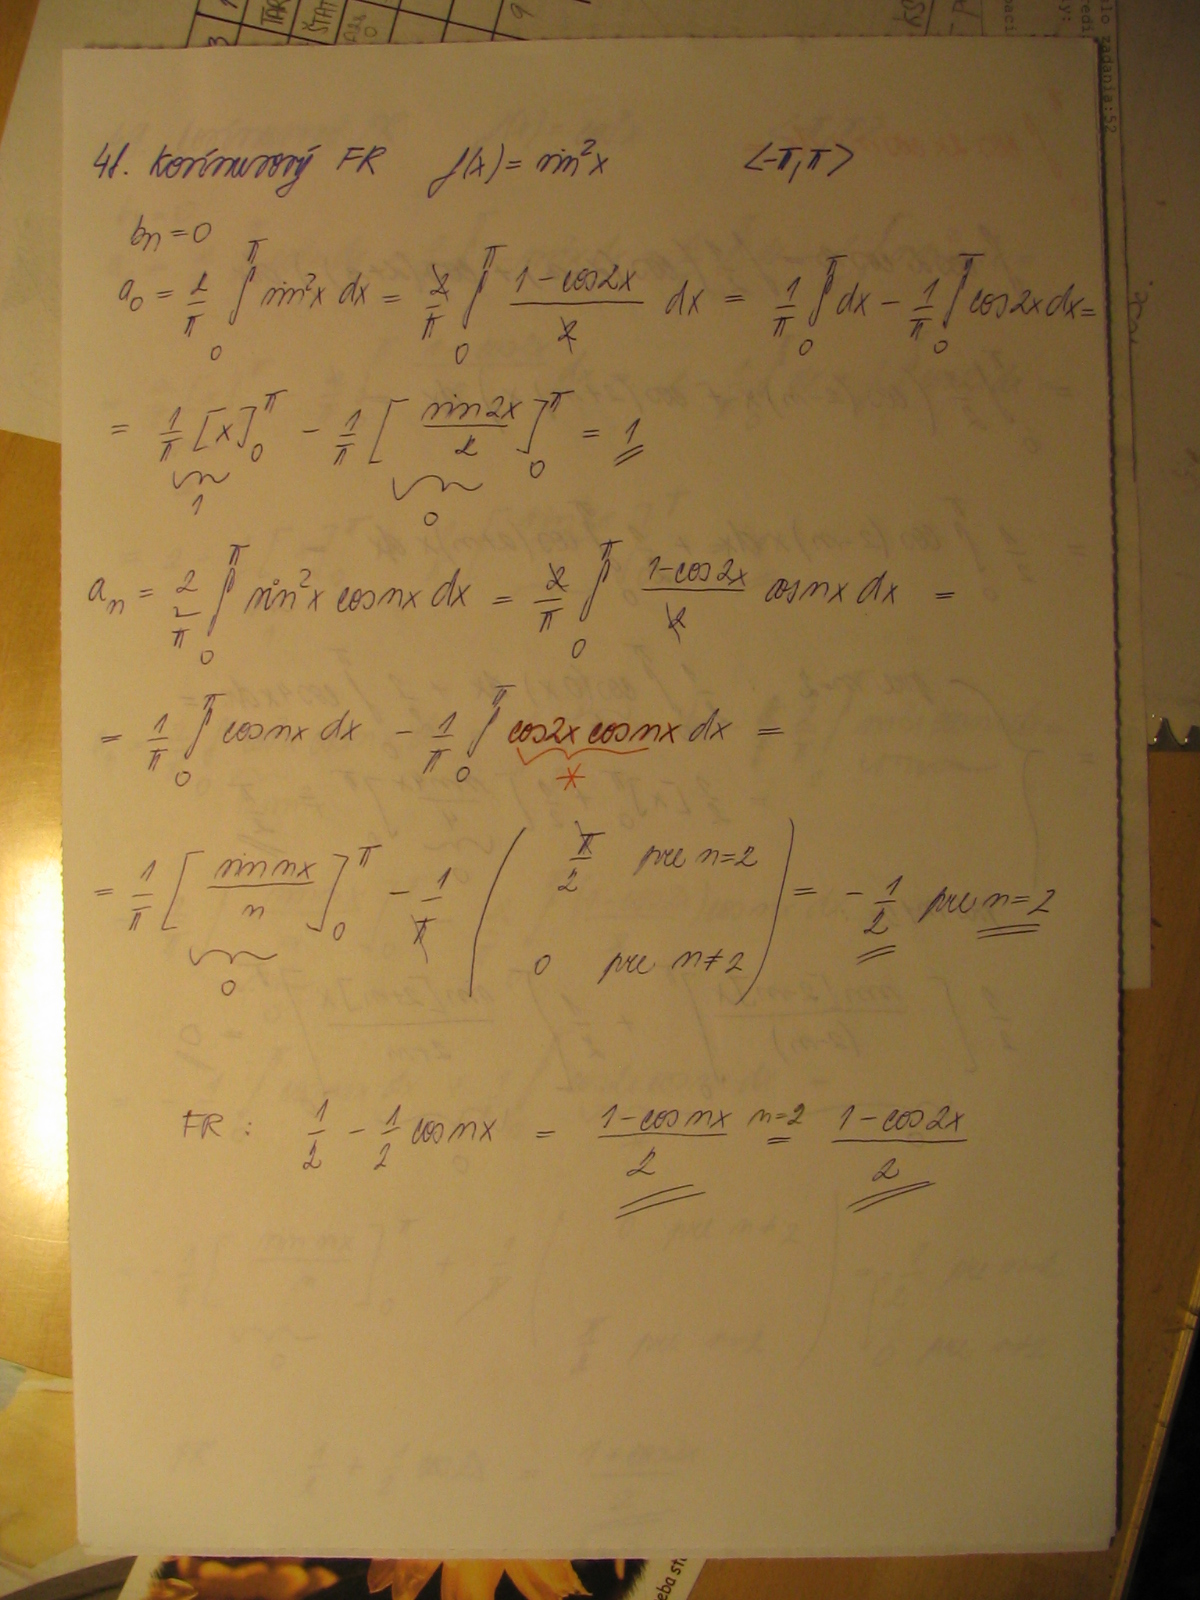 TAR
ŠTAT
9
lo zadania:52
48. Kosínusový FR f(x) = sin²x <-π,π>
bn = 0
a₀ = 2/π ∫₀^π sin²x dx = 2/π ∫₀^π (1-cos2x)/2 dx = 1/π ∫₀^π dx - 1/π ∫₀^π cos2x dx =
= 1/π [x]₀^π - 1/π [sin2x/2]₀^π = 1
1 0
aₙ = 2/π ∫₀^π sin²x cosnx dx = 2/π ∫₀^π (1-cos2x)/2 cosnx dx =
= 1/π ∫₀^π cosnx dx - 1/π ∫₀^π cos2x cosnx dx =
*
= 1/π [sin nx/n]₀^π - 1/π ( π/2 pre n=2
0 pre n≠2 ) = -1/2 pre n=2
0
FR: 1/2 - 1/2 cosnx = (1-cosnx)/2 n=2 = (1-cos2x)/2